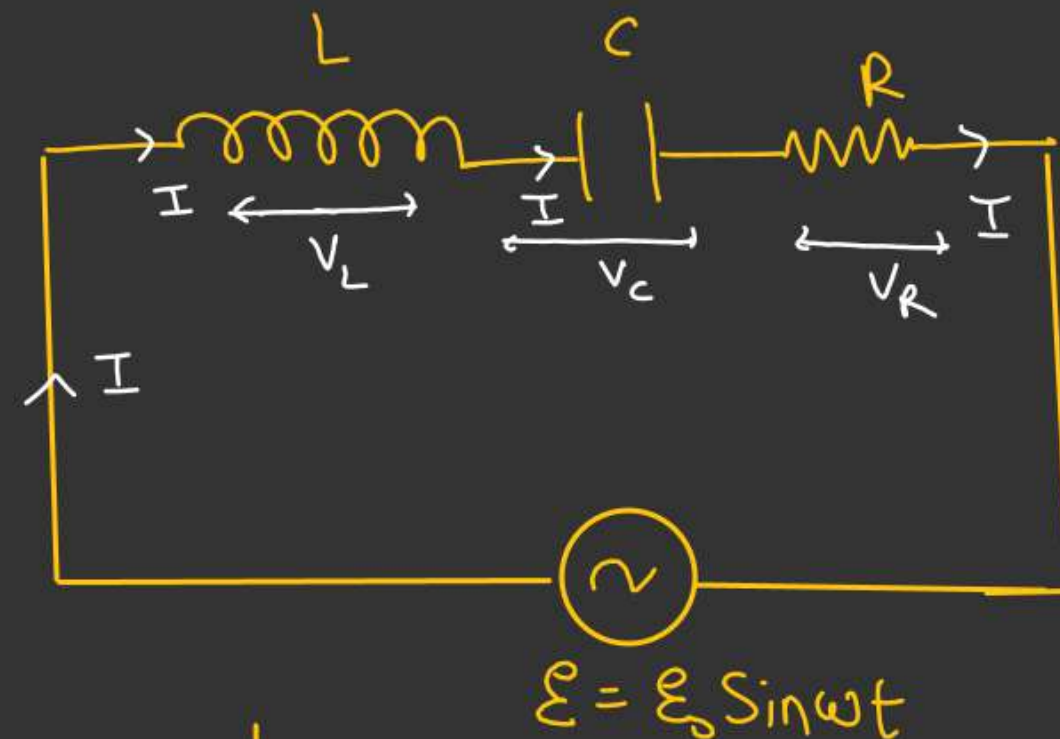 L C R
I I I
V_L V_C V_R
I
ℰ = ℰ₀ Sinωt